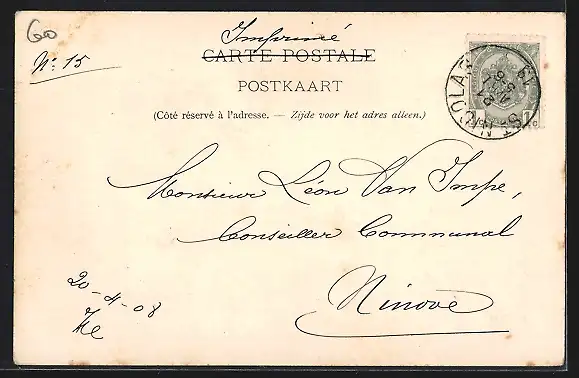 60
Imprimé
Nº 15
CARTE POSTALE
POSTKAART
(Côté réservé à l'adresse. — Zijde voor het adres alleen.)
Monsieur Léon Van Impe,
Conseiller Communal
Ninove
20-4-08